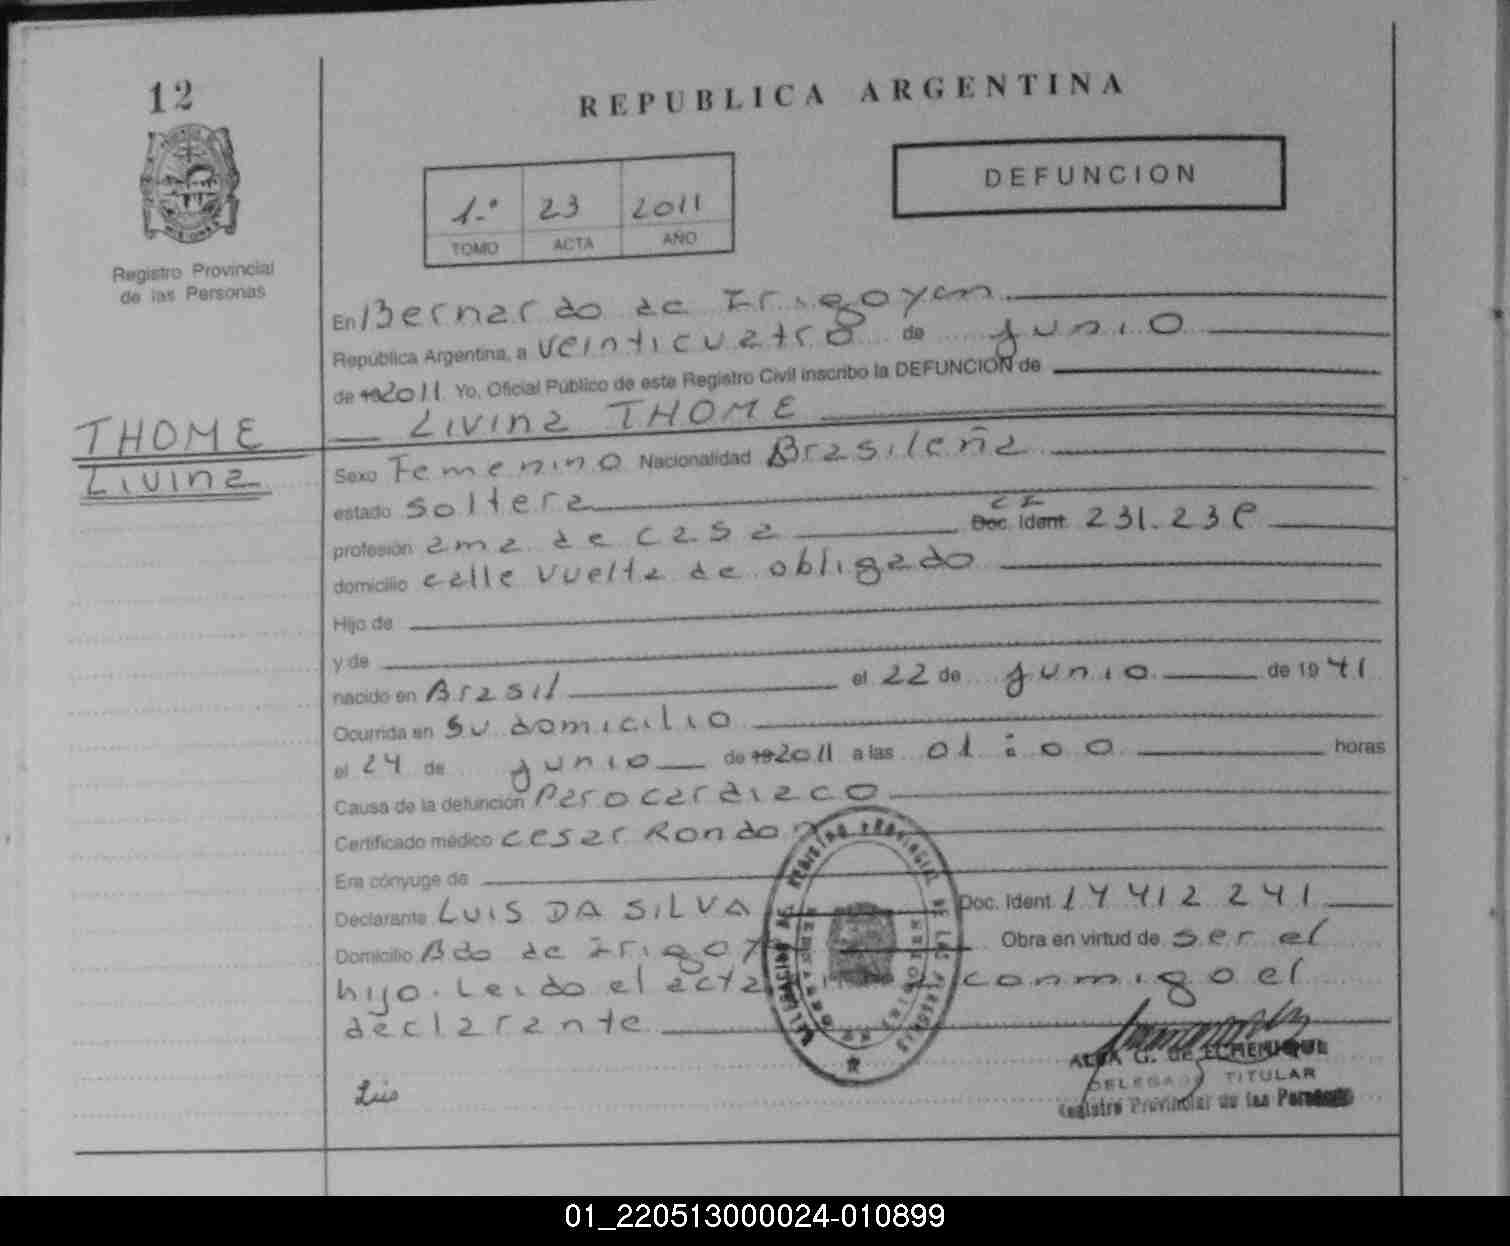 12
REPUBLICA ARGENTINA
DEFUNCION
1.º 23 2011
TOMO ACTA AÑO
Registro Provincial
de las Personas
En Bernardo de Irigoyen
República Argentina, a veinticuatro de junio
de 19 2011 Yo, Oficial Público de este Registro Civil inscribo la DEFUNCION de
THOME
Livina
Livina THOME
Sexo Femenino Nacionalidad Brasileña
estado soltera
profesión ama de casa Doc. Ident. 231.23
domicilio calle vuelta de obligado
Hijo de
y de
nacido en Brasil el 22 de junio de 19 41
Ocurrida en su domicilio
el 24 de junio de 19 2011 a las 01:00 horas
Causa de la defunción Parocardiaco
Certificado médico Cesar Rondo
Era cónyuge de
Declarante LUIS DA SILVA Doc. Ident. 17 412 241
Domicilio Bdo de Irigoy Obra en virtud de ser el
hijo. Leido el acta conmigo el
declarante
REGISTRO PROVINCIAL DE LAS PERSONAS
Luis
ALBA G. de ECHENIQUE
DELEGADO TITULAR
Registro Provincial de las Personas
01_220513000024-010899